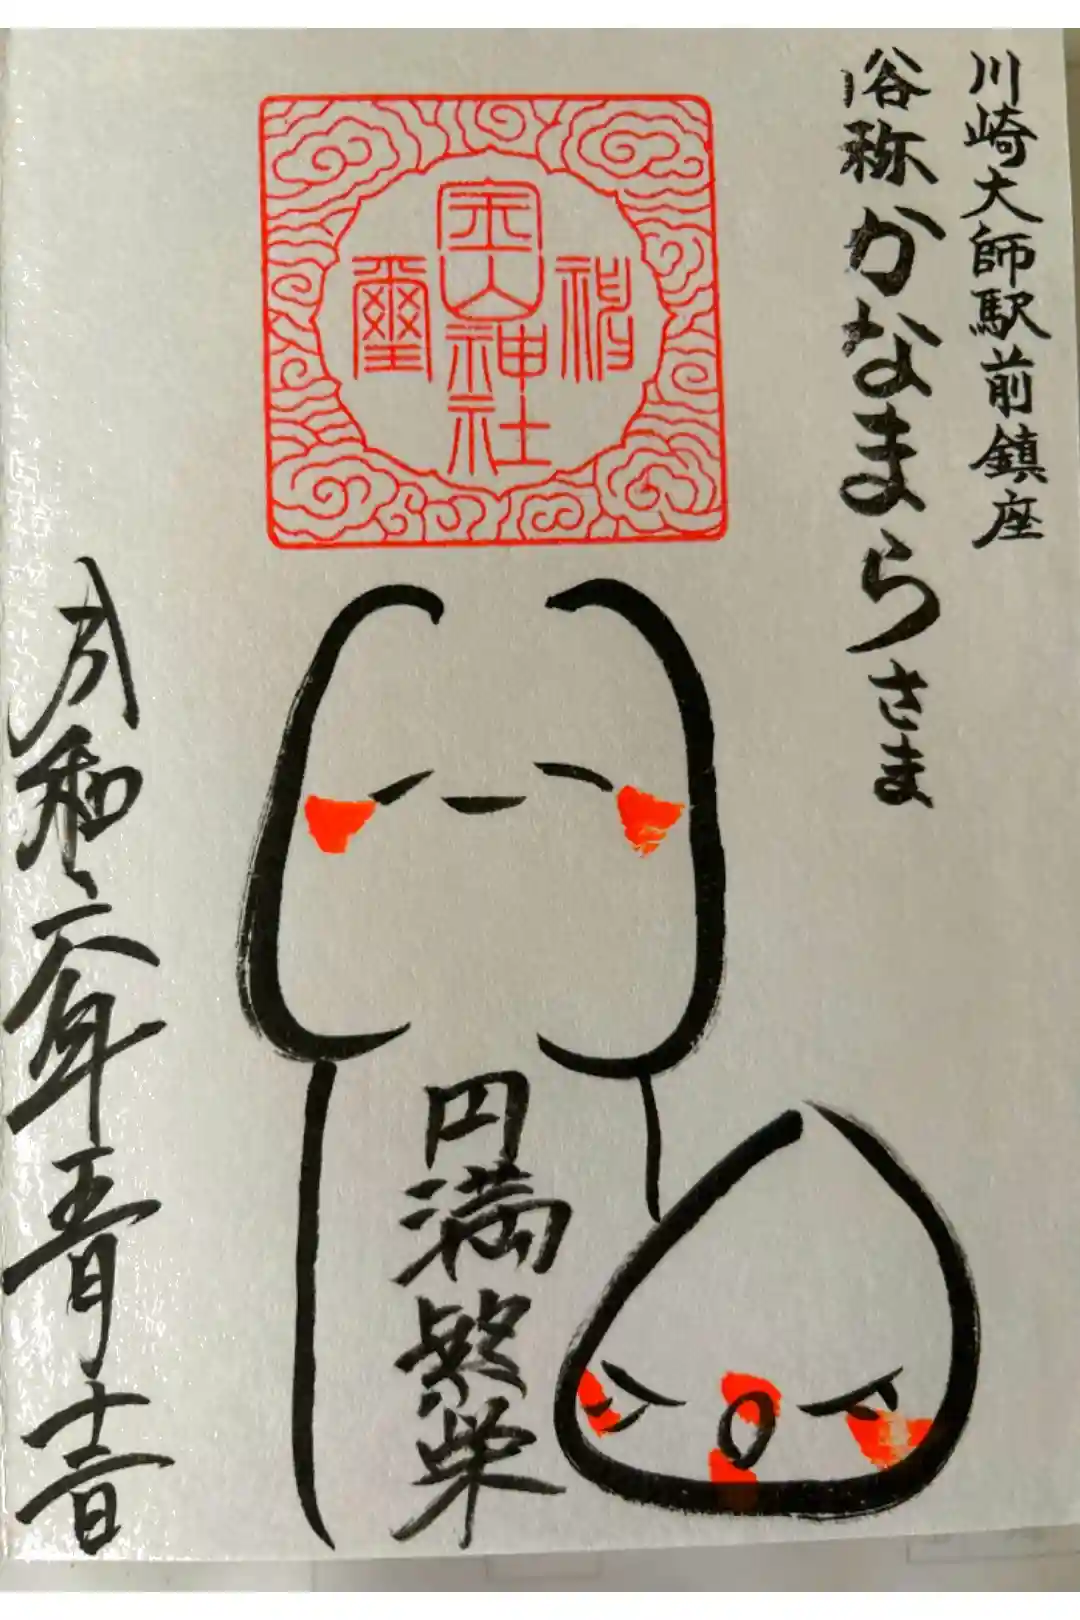 川崎大師駅前鎮座
俗称かなまらさま
金山神社
神璽
円満繁栄
令和六年五月十二日